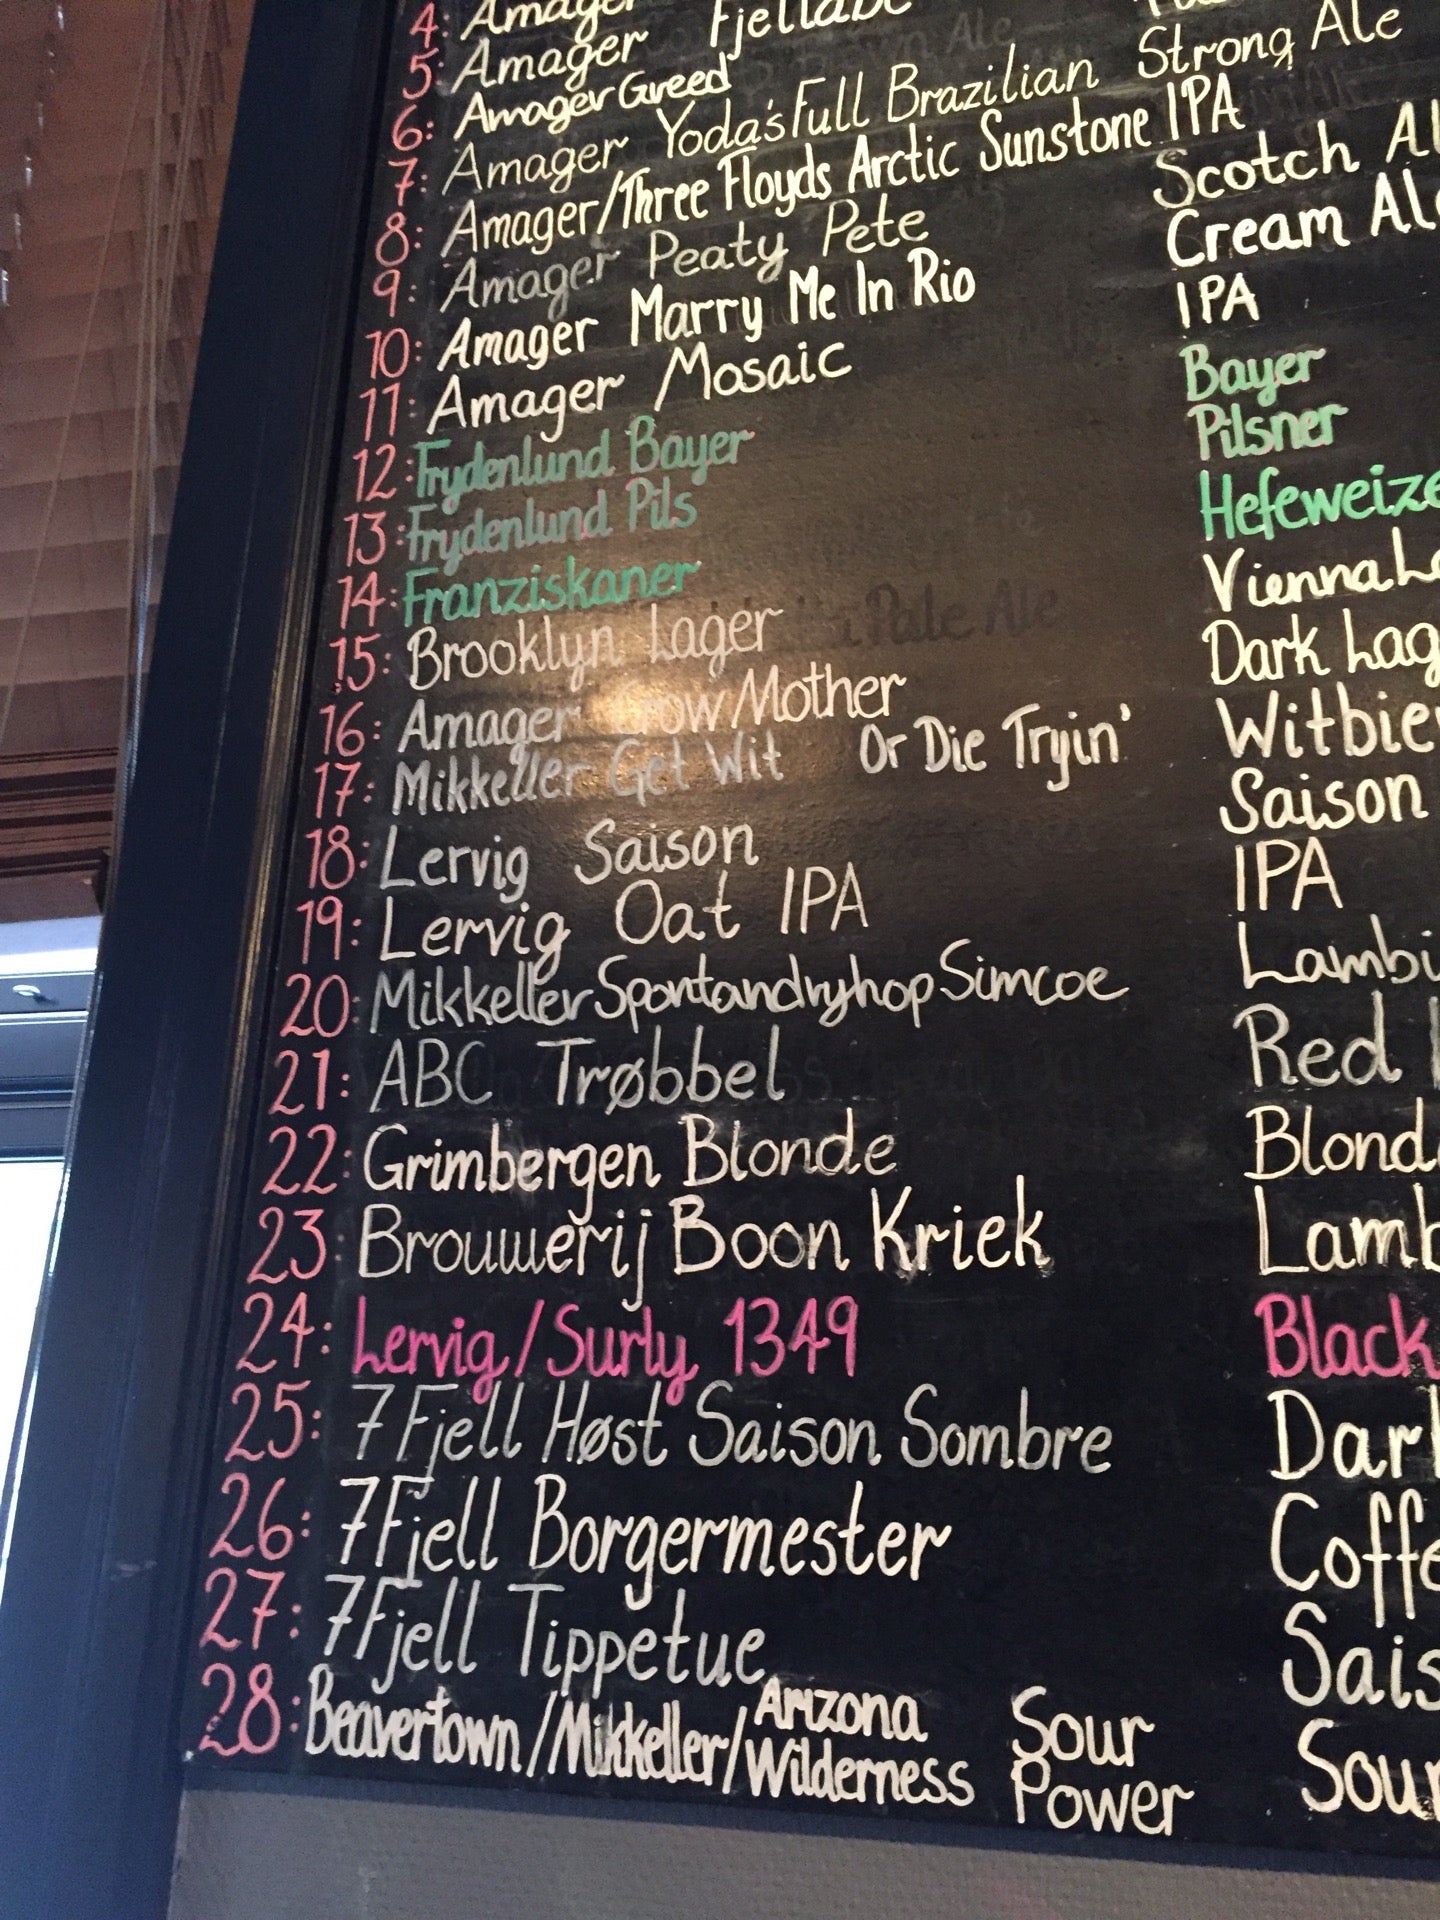 4: Amager
5: Amager Fjellabe
6: Amager Greed
7: Amager Yoda's Full Brazilian Strong Ale
8: Amager/Three Floyds Arctic Sunstone IPA
9: Amager Peaty Pete Scotch Al
10: Amager Marry Me In Rio Cream Ale
11: Amager Mosaic IPA
12: Frydenlund Bayer Bayer
13: Frydenlund Pils Pilsner
14: Franziskaner Hefeweize
15: Brooklyn Lager Vienna L
16: Amager Mother Dark Lag
17: Mikkeller Get Wit Or Die Tryin' Witbie
18: Lervig Saison Saison
19: Lervig Oat IPA IPA
20: Mikkeller Spontandryhop Simcoe Lambi
21: ABC Trøbbel Red
22: Grimbergen Blonde Blond
23: Brouwerij Boon Kriek Lamb
24: Lervig/Surly 1349 Black
25: 7 Fjell Høst Saison Sombre Dark
26: 7 Fjell Borgermester Coffe
27: 7 Fjell Tippetue Sais
28: Beavertown/Mikkeller/Arizona Wilderness Sour Power Sour